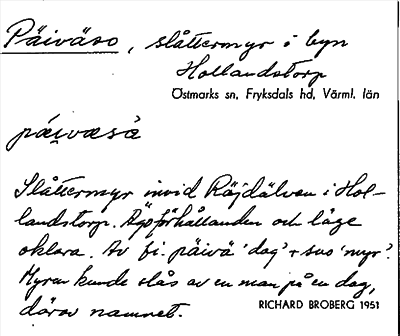 Päiväso, slåttermyr i byn
Hollandstorp
Östmarks sn, Fryksdals hd, Värml. län
päi̯væsà
Slåttermyr invid Röjdälven i Hol-
landstorp. Ägoförhållanden och läge
oklara. Av fi. päivä 'dag' + suo 'myr'.
Myren kunde slås av en man på en dag,
därav namnet. RICHARD BROBERG 1951